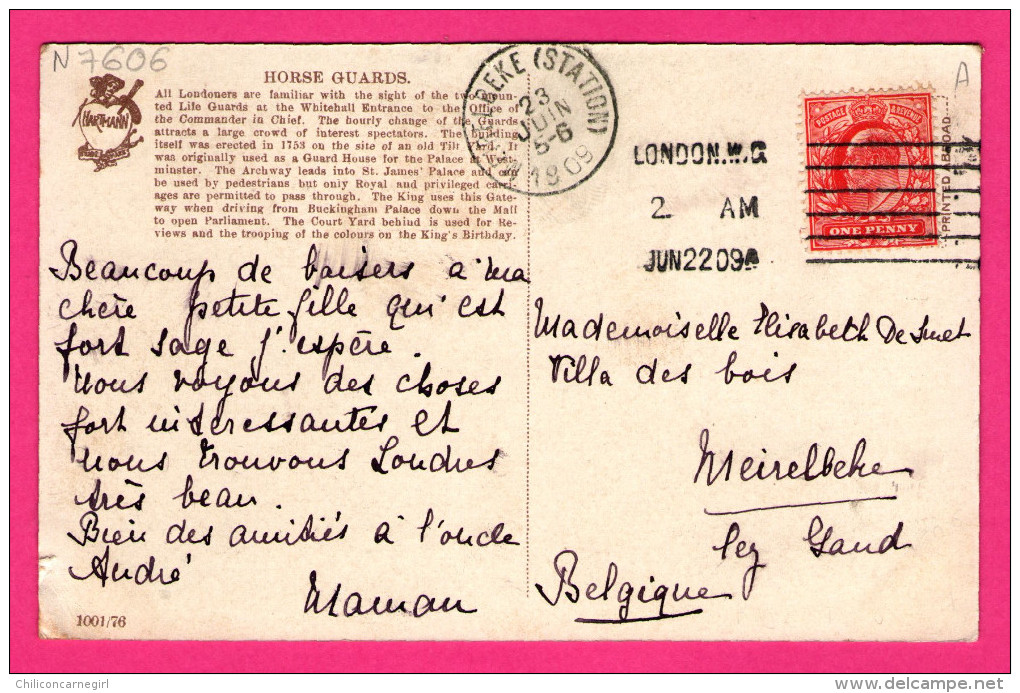 N 7606
A
HARTMANN
HORSE GUARDS.
All Londoners are familiar with the sight of the two moun-
ted Life Guards at the Whitehall Entrance to the Office of
the Commander in Chief. The hourly change of the Guards
attracts a large crowd of interest spectators. The building
itself was erected in 1753 on the site of an old Tilt Yard. It
was originally used as a Guard House for the Palace at West-
minster. The Archway leads into St. James' Palace and can
be used by pedestrians but only Royal and privileged carri-
ages are permitted to pass through. The King uses this Gate-
way when driving from Buckingham Palace down the Mall
to open Parliament. The Court Yard behind is used for Re-
views and the trooping of the colours on the King's Birthday.
Beaucoup de baisers à ma
chère petite fille qui est
fort sage j'espère.
Nous voyons des choses
fort intéressantes et
nous trouvons Londres
très beau.
Bien des amitiés à l'oncle
André
Maman
1001/76
BEKE (STATION)
23
JUIN
5-6
1909
LONDON.W.C
2 AM
JUN 22 09 A
POSTAGE & REVENUE
ONE PENNY
PRINTED ABROAD
Mademoiselle Elisabeth De Smet
Villa des bois
Meirelbeke
lez Gand
Belgique
Chiliconcarnegirl
delcampe.net